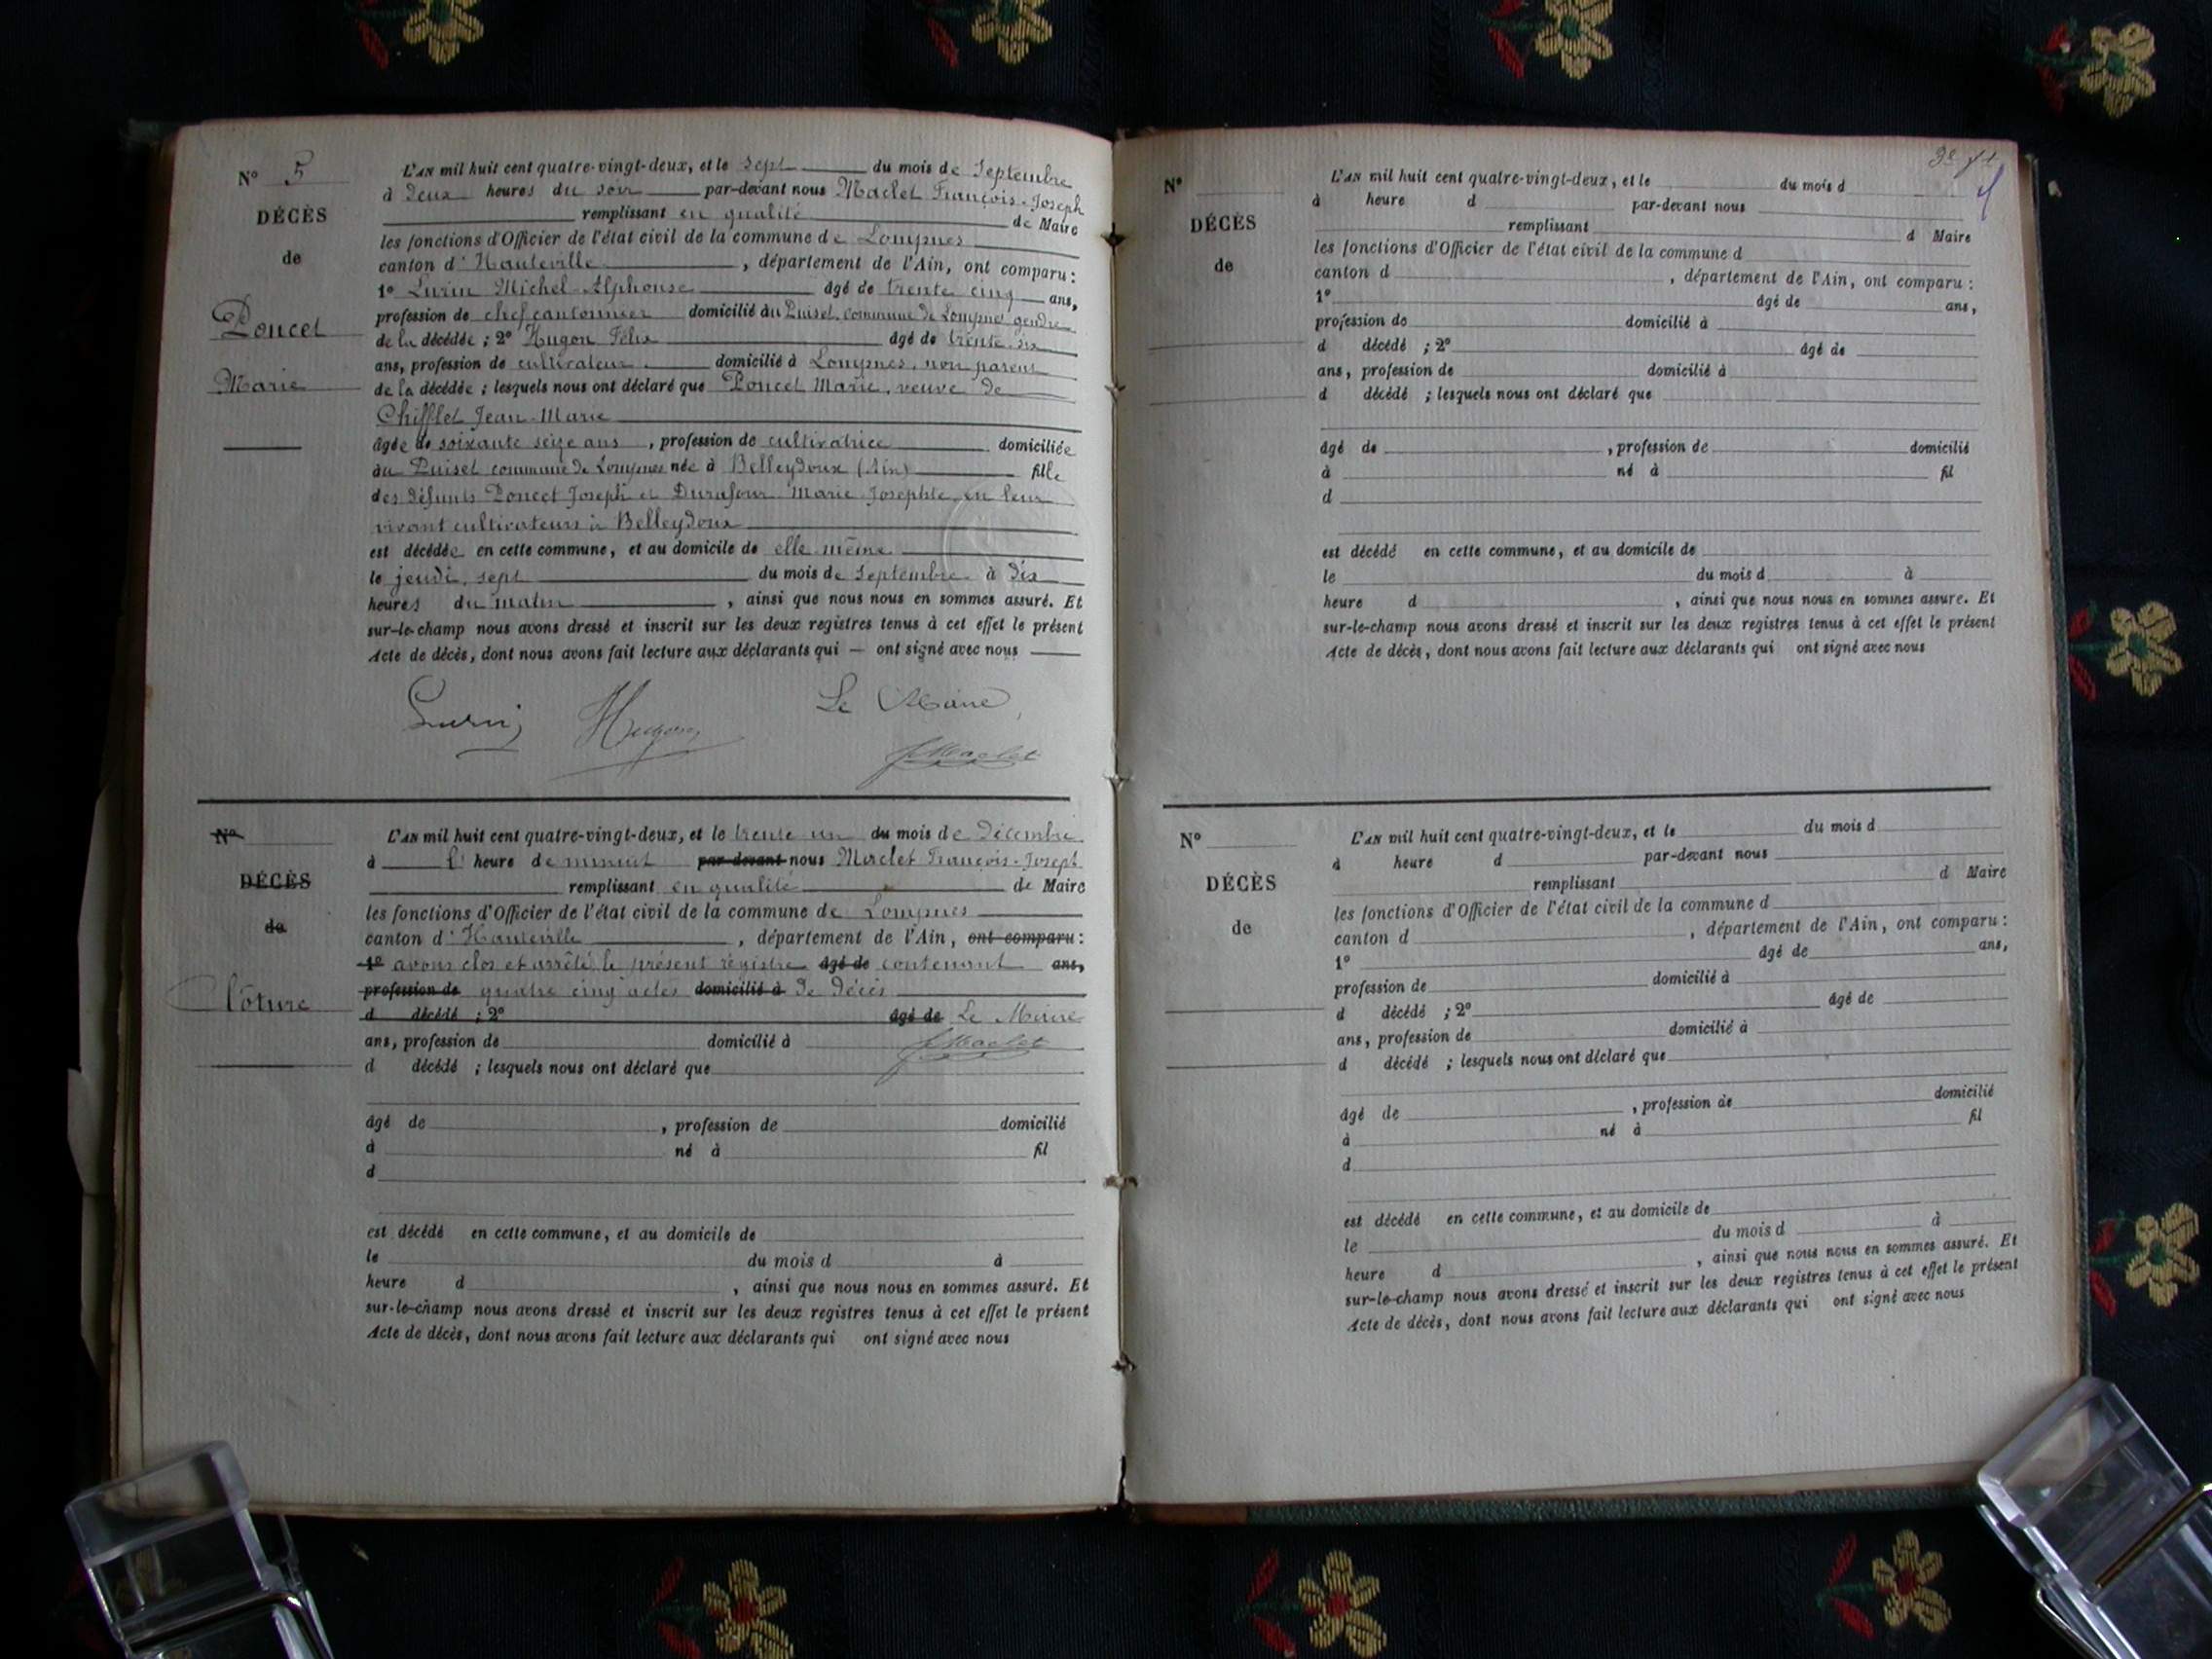 N° 5
DÉCÈS
de
Poncet
Marie
L'AN mil huit cent quatre-vingt-deux, et le sept du mois de Septembre
à deux heures du soir par-devant nous Maclet François-Joseph
remplissant en qualité de Maire
les fonctions d'Officier de l'état civil de la commune de Lompnes
canton d'Hauteville, département de l'Ain, ont comparu :
1° Lurin Michel-Alphonse âgé de trente cinq ans,
profession de chef cantonnier domicilié au Puiset, commune de Lompnes gendre
de la décédée ; 2° Hugon Félix âgé de trente-six
ans, profession de cultivateur domicilié à Lompnes, non parent
de la décédée ; lesquels nous ont déclaré que Poncet Marie, veuve de
Chifflet Jean-Marie
âgée de soixante seize ans, profession de cultivatrice domiciliée
au Puiset commune de Lompnes née à Belleydoux (Ain) fille
des défunts Poncet Joseph et Durafour Marie-Josephte, en leur
vivant cultivateurs à Belleydoux
est décédée en cette commune, et au domicile de elle-même
le jeudi, sept du mois de Septembre à dix
heures du matin, ainsi que nous nous en sommes assuré. Et
sur-le-champ nous avons dressé et inscrit sur les deux registres tenus à cet effet le présent
Acte de décès, dont nous avons fait lecture aux déclarants qui — ont signé avec nous
Lurin Hugon Le Maire
Maclet
N°
DÉCÈS
de
Clôture
L'AN mil huit cent quatre-vingt-deux, et le trente un du mois de Décembre
à l'heure de minuit par-devant nous Maclet François-Joseph
remplissant en qualité de Maire
les fonctions d'Officier de l'état civil de la commune de Lompnes
canton d'Hauteville, département de l'Ain, ont comparu :
1° avons clos et arrêté le présent registre âgé de contenant ans,
profession de quatre cinq actes domicilié à de décès
d décédé ; 2° âgé de Le Maire
ans, profession de domicilié à Maclet
d décédé ; lesquels nous ont déclaré que
âgé de , profession de domicilié
à né à fil
d
est décédé en cette commune, et au domicile de
le du mois d à
heure d , ainsi que nous nous en sommes assuré. Et
sur-le-champ nous avons dressé et inscrit sur les deux registres tenus à cet effet le présent
Acte de décès, dont nous avons fait lecture aux déclarants qui ont signé avec nous
N°
DÉCÈS
de
L'AN mil huit cent quatre-vingt-deux, et le du mois d
à heure d par-devant nous
remplissant d Maire
les fonctions d'Officier de l'état civil de la commune d
canton d , département de l'Ain, ont comparu :
1° âgé de ans,
profession de domicilié à
d décédé ; 2° âgé de
ans, profession de domicilié à
d décédé ; lesquels nous ont déclaré que
âgé de , profession de domicilié
à né à fil
d
est décédé en cette commune, et au domicile de
le du mois d à
heure d , ainsi que nous nous en sommes assuré. Et
sur-le-champ nous avons dressé et inscrit sur les deux registres tenus à cet effet le présent
Acte de décès, dont nous avons fait lecture aux déclarants qui ont signé avec nous
N°
DÉCÈS
de
L'AN mil huit cent quatre-vingt-deux, et le du mois d
à heure d par-devant nous
remplissant d Maire
les fonctions d'Officier de l'état civil de la commune d
canton d , département de l'Ain, ont comparu :
1° âgé de ans,
profession de domicilié à
d décédé ; 2° âgé de
ans, profession de domicilié à
d décédé ; lesquels nous ont déclaré que
âgé de , profession de domicilié
à né à fil
d
est décédé en cette commune, et au domicile de
le du mois d à
heure d , ainsi que nous nous en sommes assuré. Et
sur-le-champ nous avons dressé et inscrit sur les deux registres tenus à cet effet le présent
Acte de décès, dont nous avons fait lecture aux déclarants qui ont signé avec nous